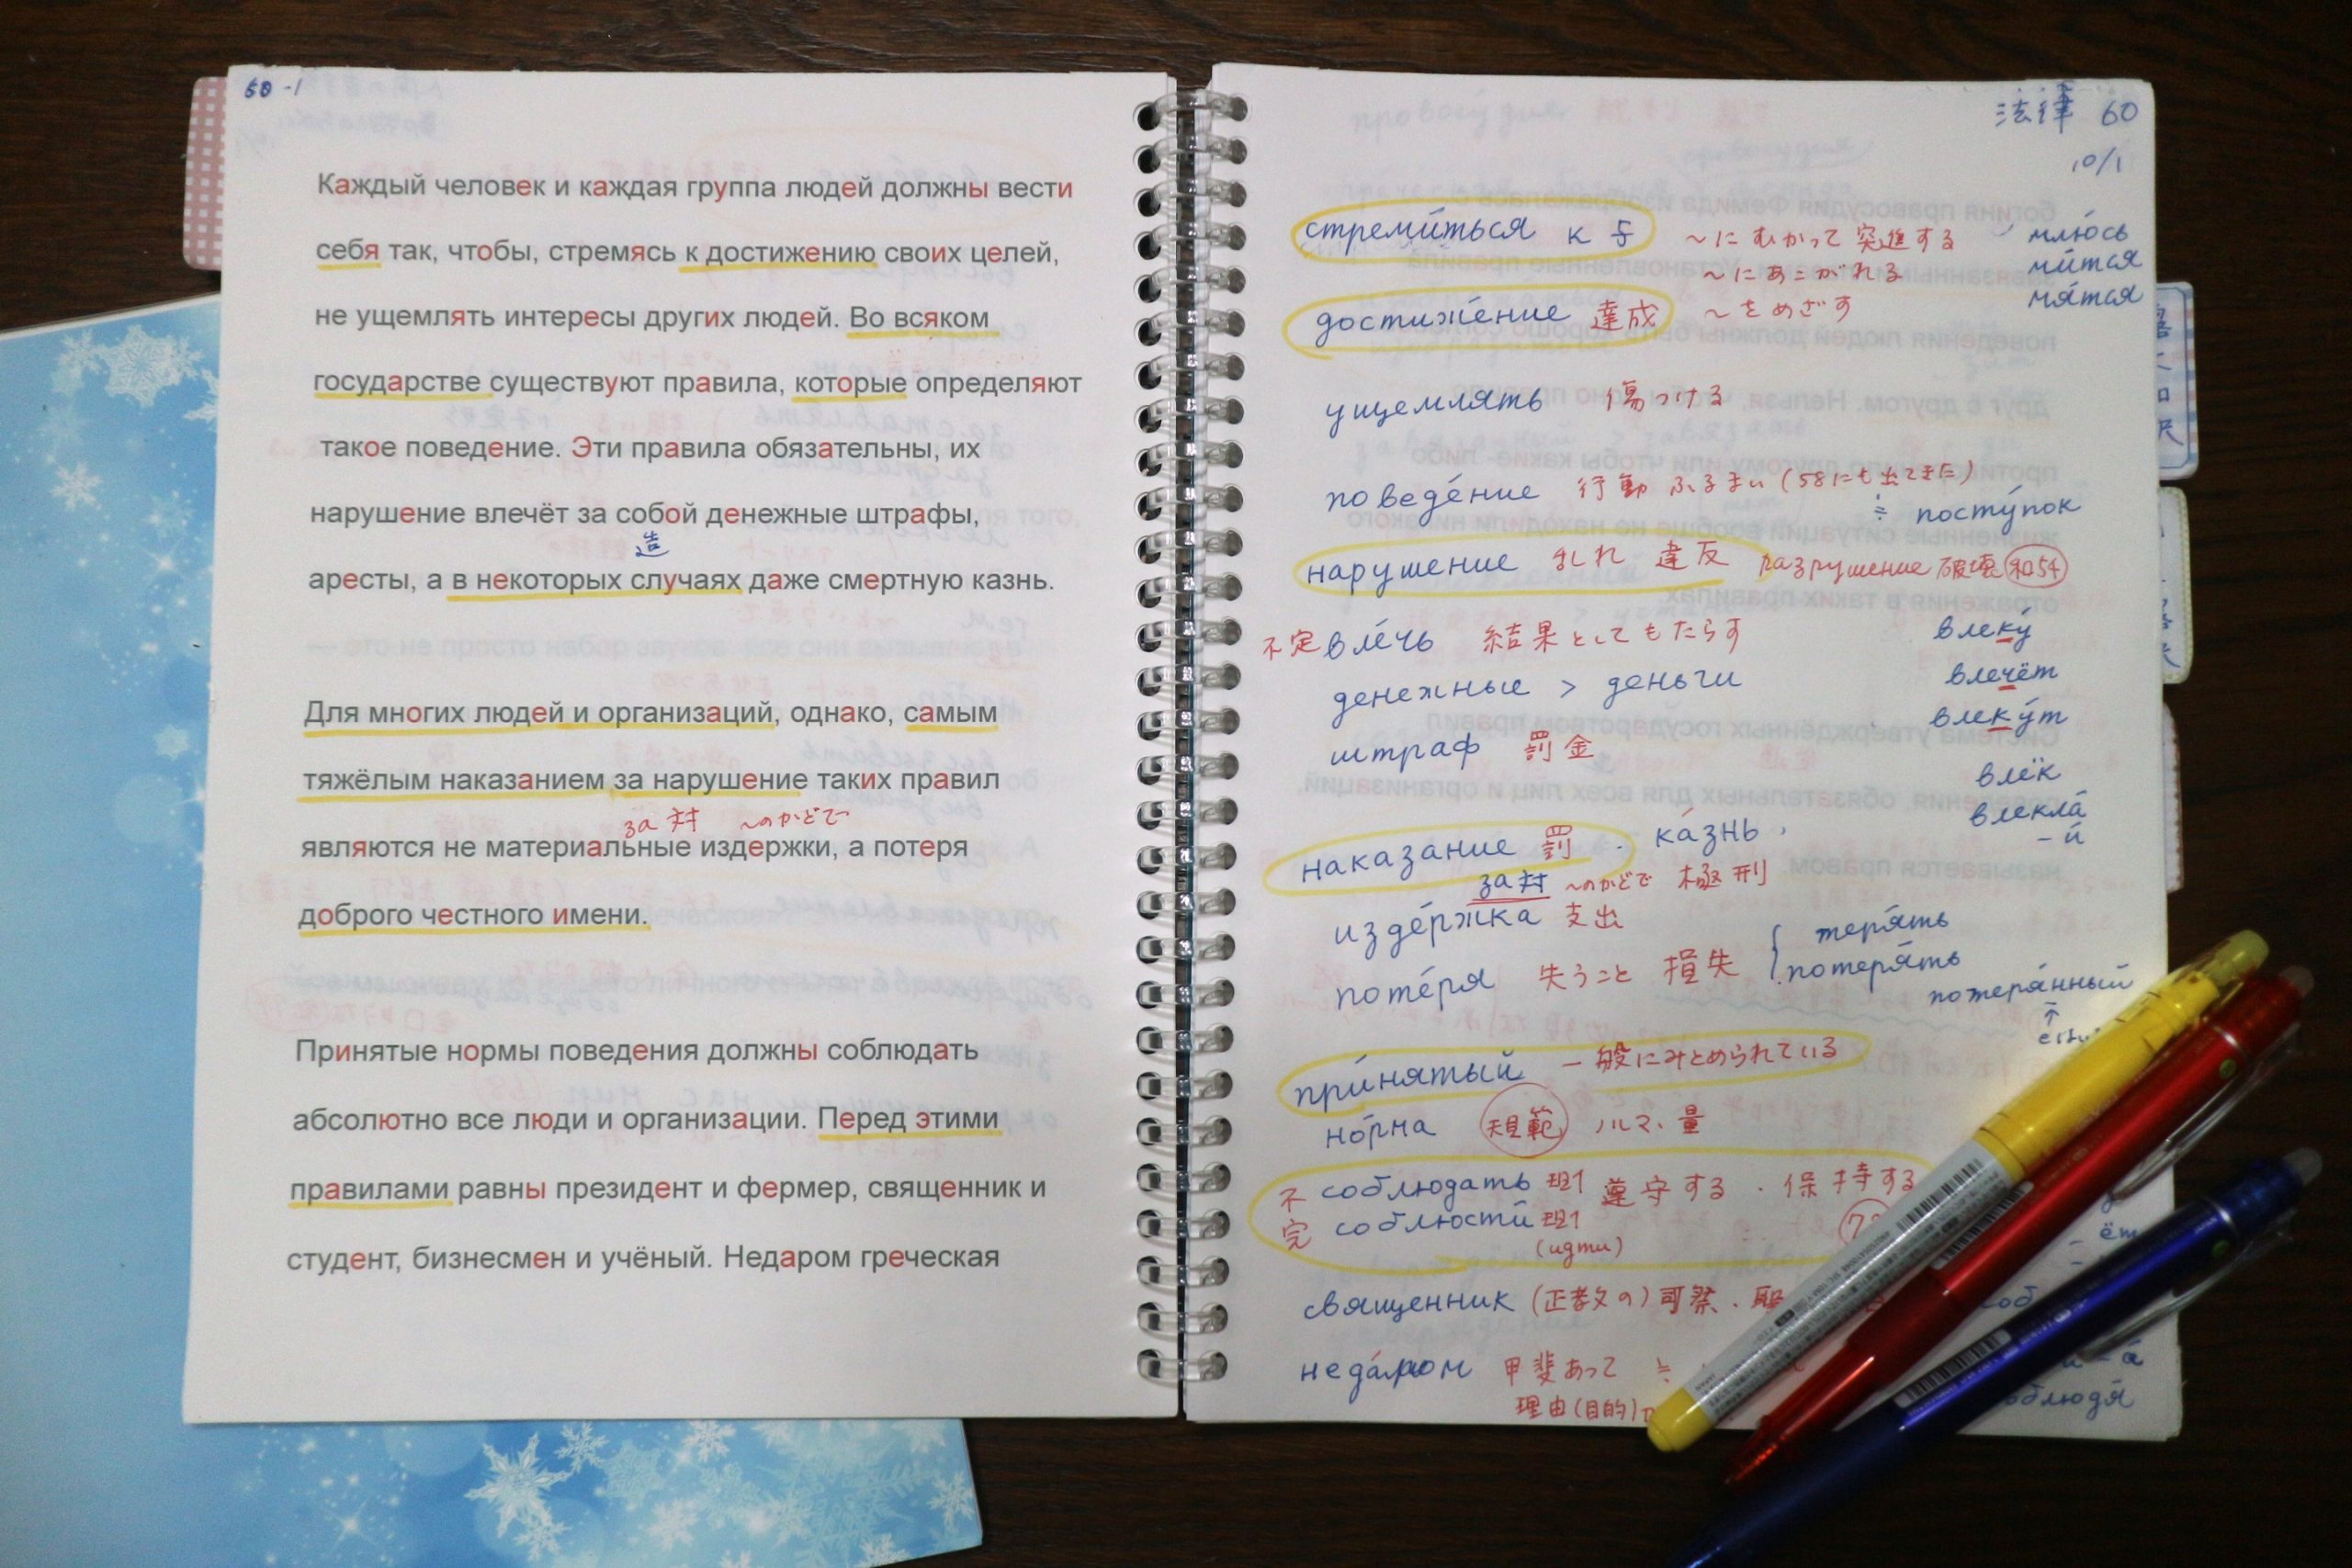 60-1
Каждый человек и каждая группа людей должны вести
себя так, чтобы, стремясь к достижению своих целей,
не ущемлять интересы других людей. Во всяком
государстве существуют правила, которые определяют
такое поведение. Эти правила обязательны, их
нарушение влечёт за собой денежные штрафы,
造
аресты, а в некоторых случаях даже смертную казнь.
Для многих людей и организаций, однако, самым
тяжёлым наказанием за нарушение таких правил
за 対 〜のかどで
являются не материальные издержки, а потеря
доброго честного имени.
Принятые нормы поведения должны соблюдать
абсолютно все люди и организации. Перед этими
правилами равны президент и фермер, священник и
студент, бизнесмен и учёный. Недаром греческая
法律 60
10/1
стреми́ться к 〜にむかって突進する
млю́сь
〜にあこがれる
ми́тся
мя́тся
достиже́ние 達成 〜をめざす
ущемлять 傷つける
поведе́ние 行動 ふるまい (58にも出てきた)
≒ посту́пок
нарушение 乱れ 違反 разрушение 破壊 和54
不定 вле́чь 結果としてもたらす
влеку́
влечёт
денежные > деньги
влеку́т
штраф 罰金
влёк
влекла́
-и́
наказание 罰 . ка́знь
за対 〜のかどで 極刑
изде́ржка 支出
поте́ря 失うこと 損失 { теря́ть
потеря́ть
поте́рянный
↑
при́нятый 一般にみとめられている
но́рма 規範 ノルマ、量
不 соблюдать 現1 遵守する . 保持する
完 соблюсти́ 現1
(идти)
священник (正教の) 司祭.
неда́ром 甲斐あって ≒
理由(目的)
блюдя́